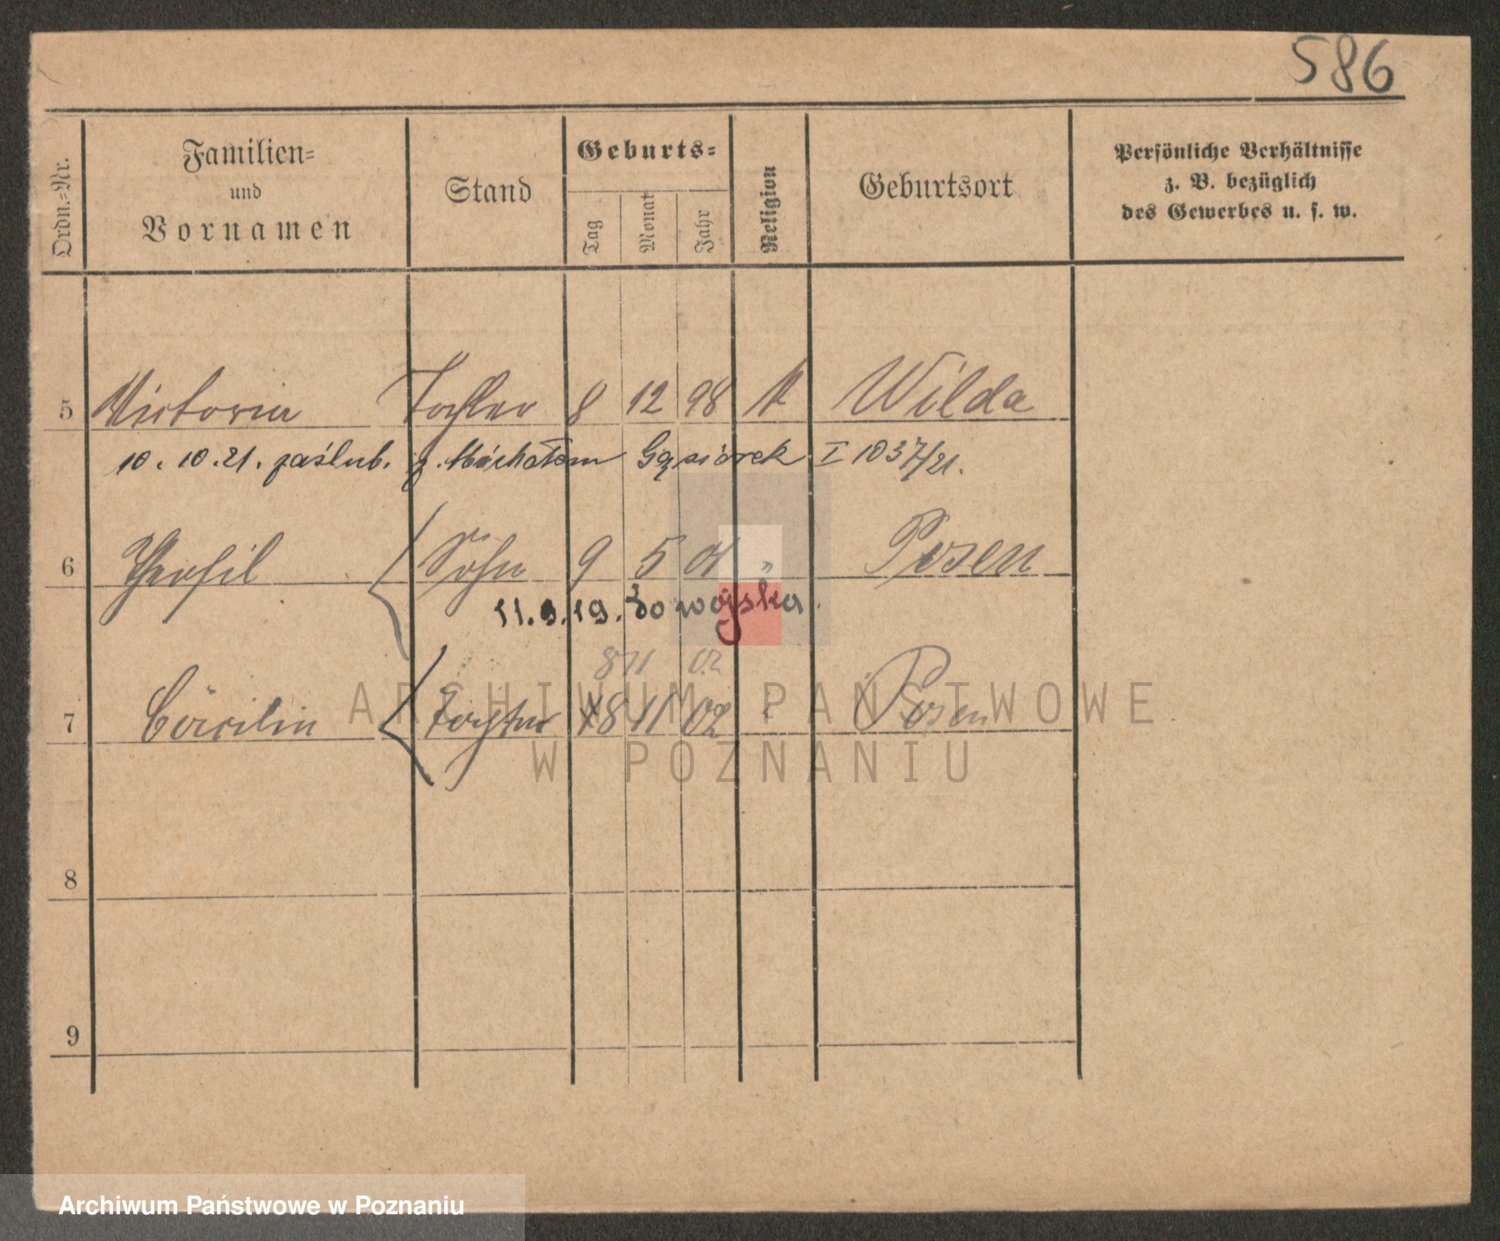 586
Ordn.-Nr.
Familien-
und
Vornamen
Stand
Geburts-
Tag
Monat
Jahr
Religion
Geburtsort
Persönliche Verhältnisse
z. B. bezüglich
des Gewerbes u. s. w.
5 Victoria Tochter 8 12 98 k Wilda
10. 10. 21. zaślub. z. Michałem Gąsiorek I 1037/21.
6 Theofil Sohn 9 5 01 " Posen
11.9.19. do wojska.
8 11 02
7 Cäcilia Tochter 8 11 02 Posen
ARCHIWUM PAŃSTWOWE
W POZNANIU
8
9
Archiwum Państwowe w Poznaniu